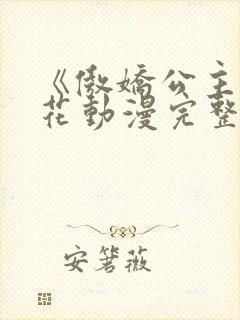 《傲娇公主
花動漫完整
安箸薇